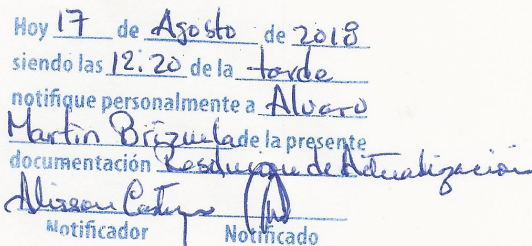 Hoy 17 de Agosto de 2018
siendo las 12:20 de la tarde
notifique personalmente a Alvaro
Martin Brizuela de la presente
documentación Resolución de Actualización
Alisson
Notificador Notificado